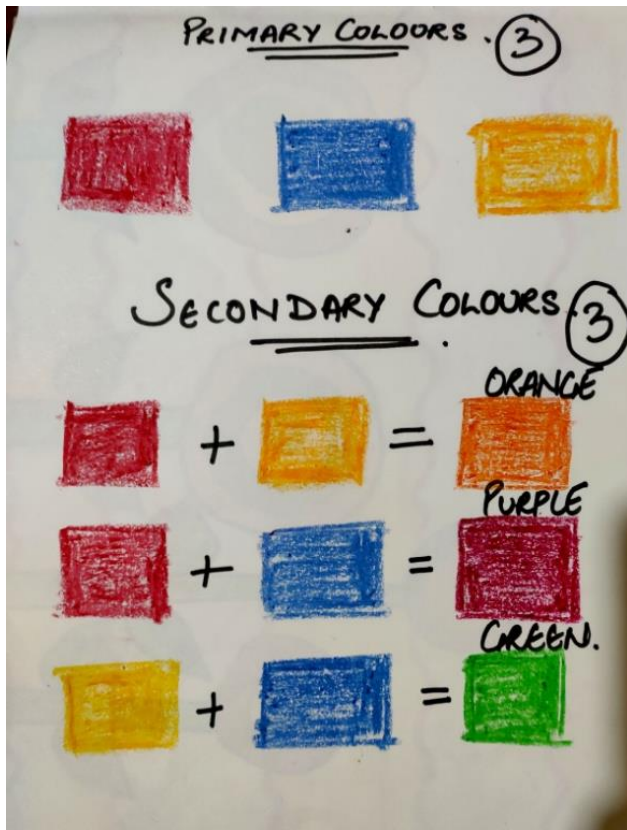 PRIMARY COLOURS. 3
SECONDARY COLOURS. 3
ORANGE
+ =
PURPLE
+ =
GREEN.
+ =